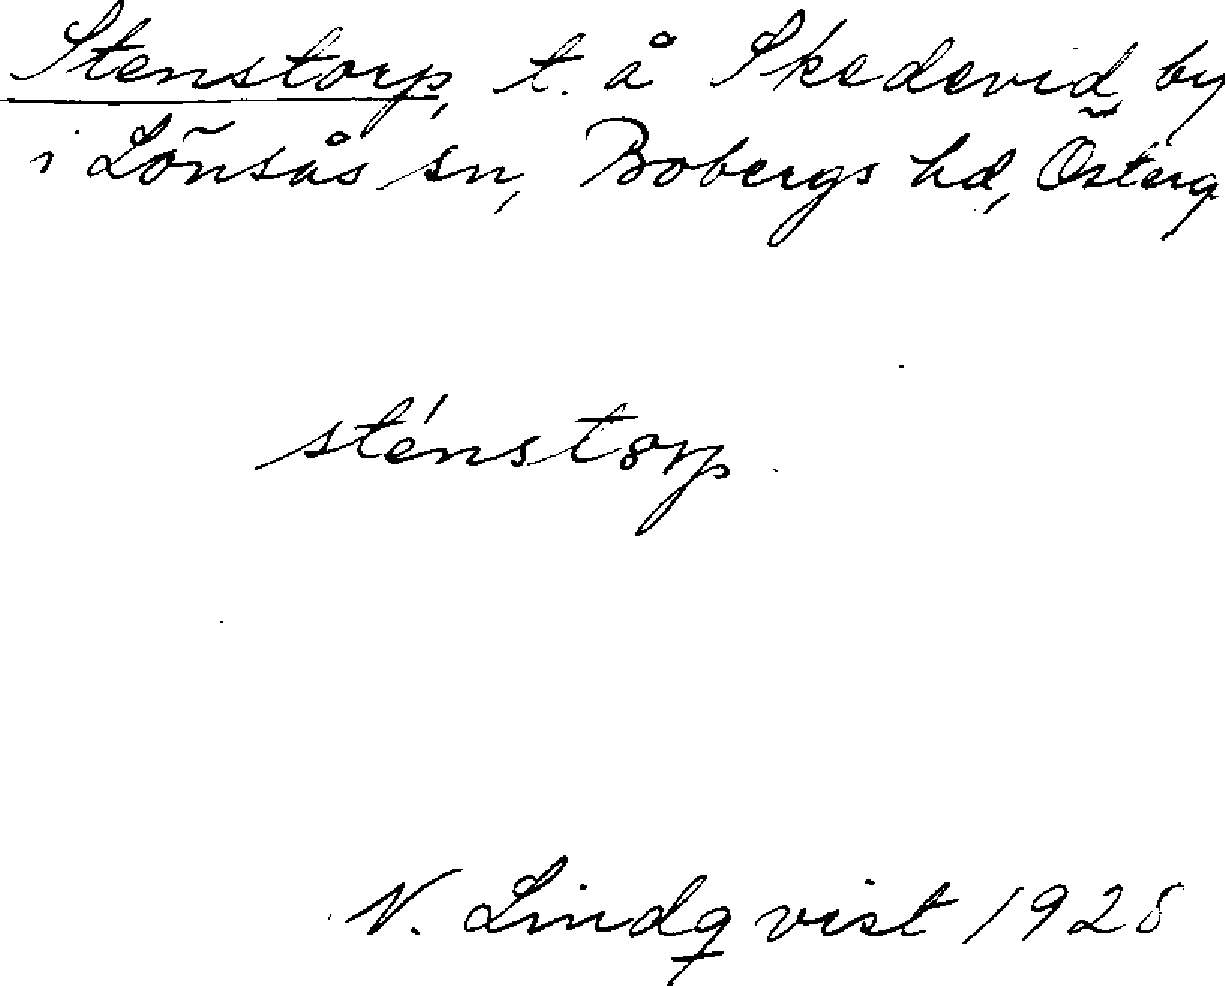 Stenstorp, t. å Skedevid, by
i Lönsås sn, Bobergs hd, Österg
sténstorp.
N. Lindqvist 1928